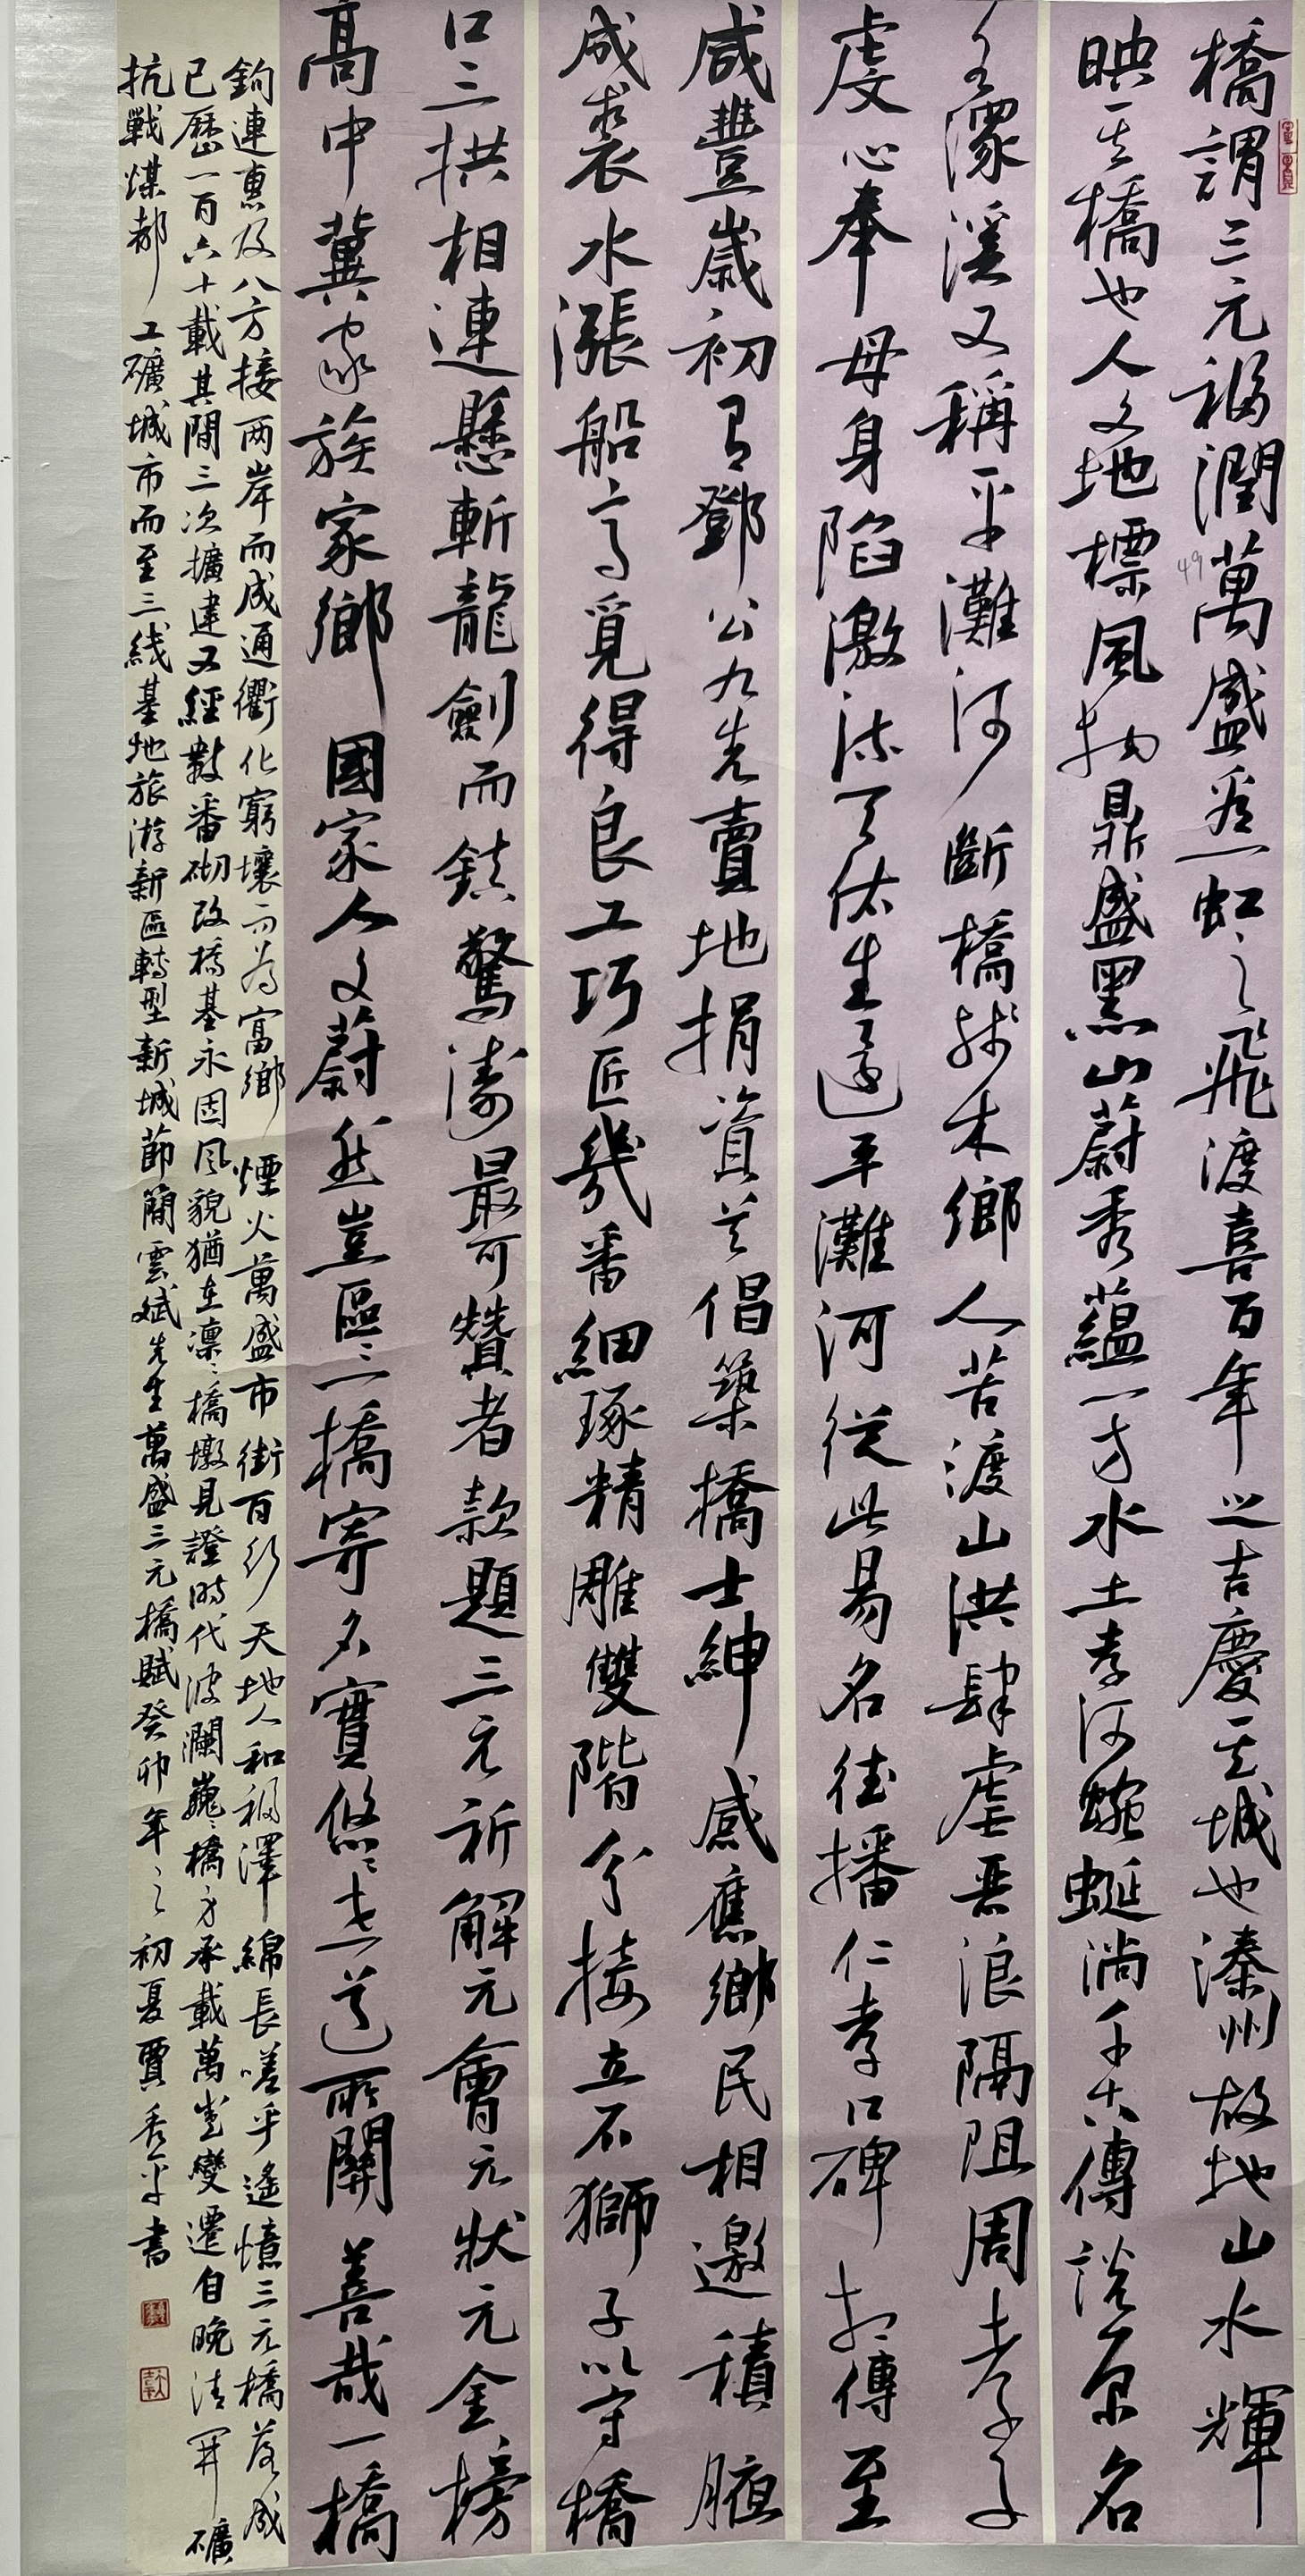 橋謂三元福潤萬盛羨一虹之飛渡喜百年之吉慶其城也溱州故地山水輝
映其橋也人文地標風物鼎盛黑山蔚秀蘊一方水土孝河蜿蜒淌千古傳說原名
濛溪又稱平灘河斷橋殘木鄉人苦渡山洪肆虐惡浪隔阻周孝子
虔心奉母身陷激流天佑生還平灘河從此易名德播仁孝口碑相傳至
咸豐歲初有鄧公九先賣地捐資首倡築橋士紳感應鄉民相邀積腋
成裘水漲船高覓得良工巧匠幾番細琢精雕雙階分接立石獅子以守橋
口三拱相連懸斬龍劍而鎮驚濤最可贊者款題三元祈解元會元狀元金榜
高中冀家族家鄉國家人文蔚然豈區區一橋寄名實悠悠志道所關善哉一橋
鉤連惠及八方接兩岸而成通衢化窮壤而為富鄉煙火萬盛市街百行天地人和福澤綿長嗟乎遙憶三元橋落成
已歷一百六十載其間三次擴建又經數番砌改橋基永固風貌猶在凛凛橋墩見證時代波瀾巍巍橋身承載萬盛變遷自晚清開礦
抗戰煤都工礦城市而至三线基地旅游新區轉型新城節簡雲斌先生萬盛三元橋賦癸卯年之初夏賈秀平書
49